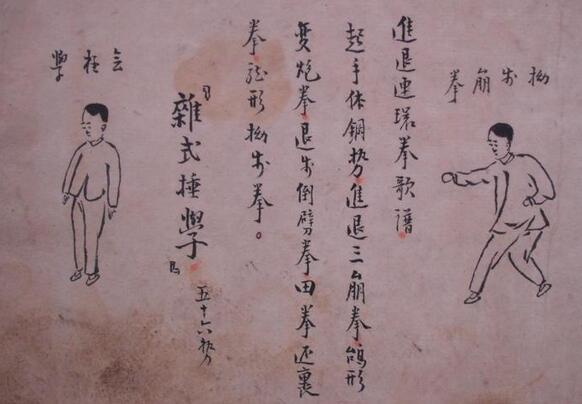 拗步崩拳
進退連環拳歌譜
起手休鋼势進退三崩拳鴿形
變炮拳退步倒劈拳田拳还裏
拳龍形拗步拳。
雜式捶學
五十六势
極學